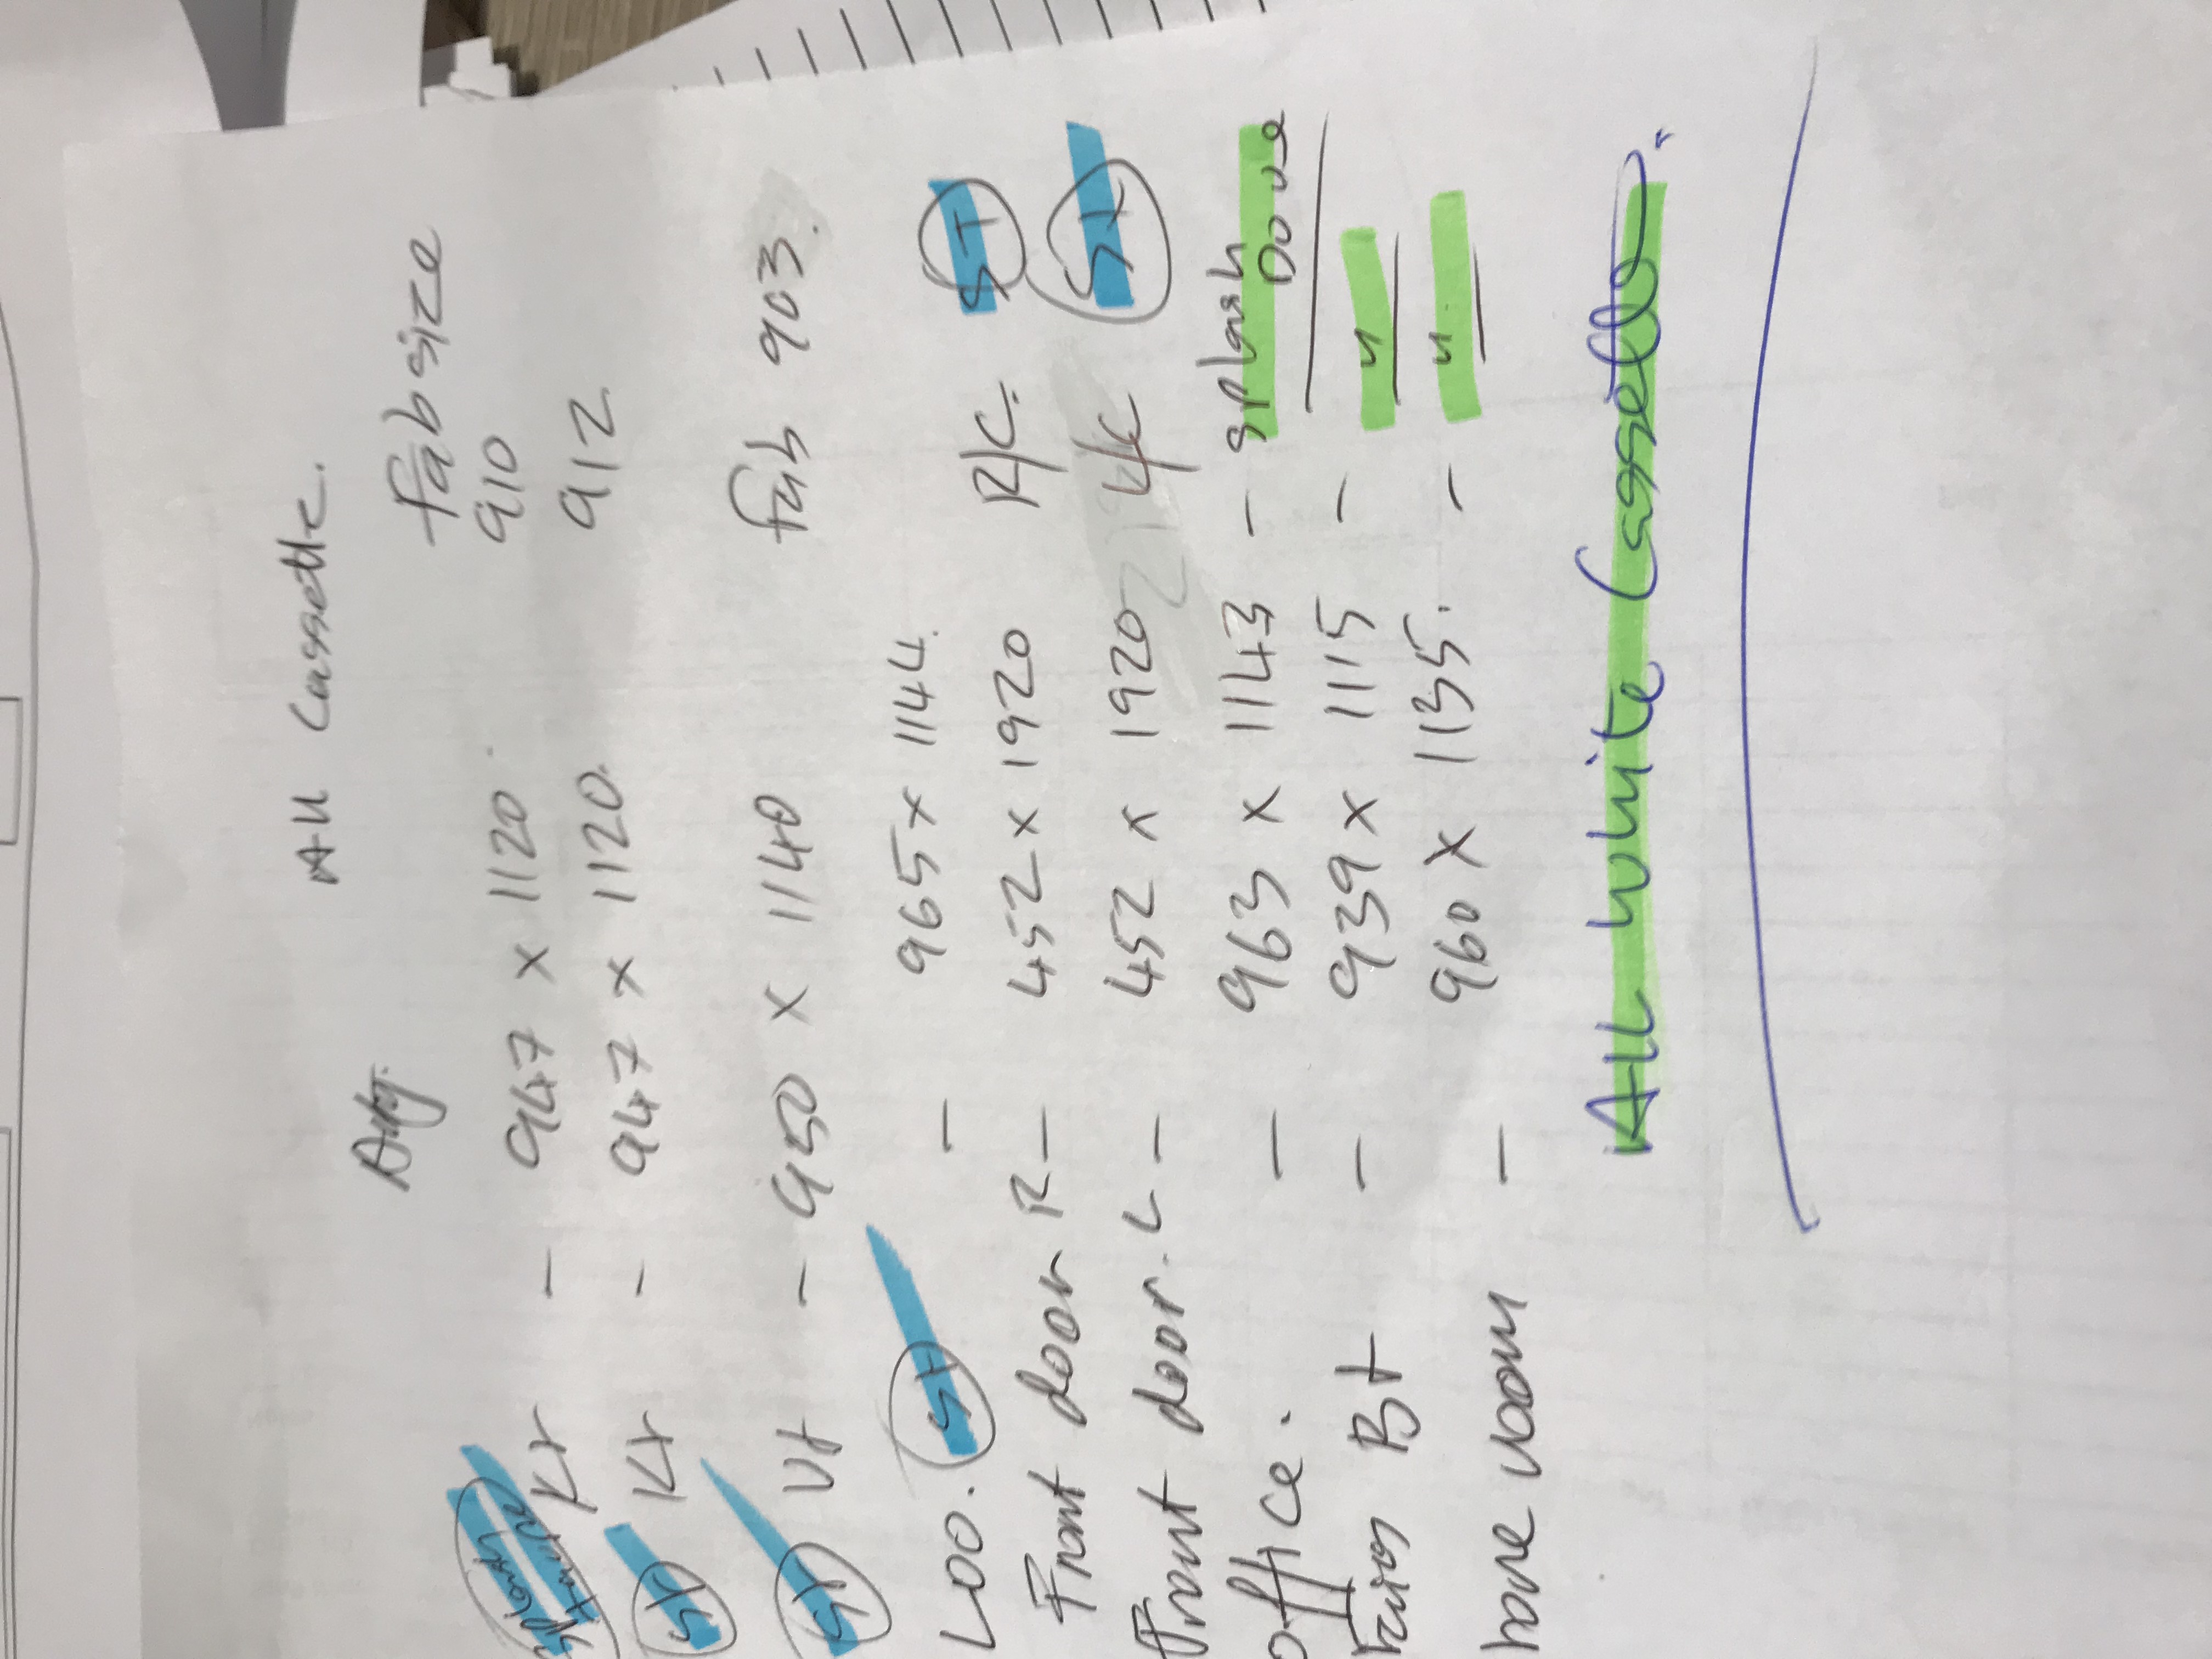 All Cassette.
Fabsize
Splash Kt - 947 x 1120. 910
St Kt - 947 x 1120. 912
St Ut - 950 x 1140 fab 903.
Loo. St - 965 x 1144.
Front door R - 452 x 1920 R/C. ST
Front door. L - 452 x 1920 L/C St
office. - 963 x 1143 - splash Dove
Bt - 939 x 1115 - "
room - 960 x 1135. - "
All white Cassette.